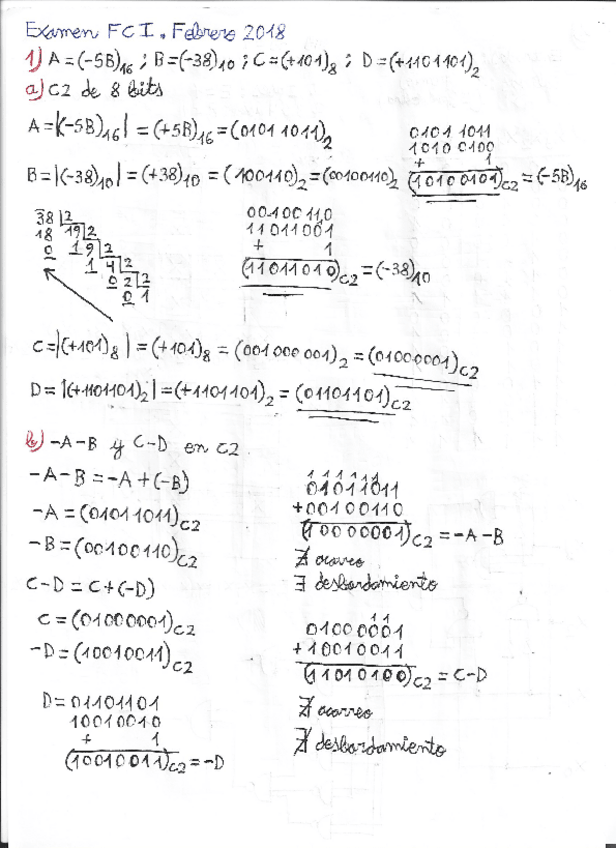 Examen FCI. Febrero 2018
1) A=(-5B)₁₆ ; B=(-38)₁₀ ; C=(+101)₈ ; D=(+1101101)₂
a) C2 de 8 bits
A=|(-5B)₁₆| = (+5B)₁₆ = (0101 1011)₂
0101 1011
1010 0100
+ 1
(10100101)C2 = (-5B)₁₆
B=|(-38)₁₀| = (+38)₁₀ = (100110)₂ = (00100110)₂
38 |2
18 19 |2
0 1 9 |2
1 4 |2
0 2 |2
0 1
00100110
11011001
+ 1
(11011010)C2 = (-38)₁₀
C=|(+101)₈| = (+101)₈ = (001 000 001)₂ = (01000001)C2
D=|(+1101101)₂| = (+1101101)₂ = (01101101)C2
b) -A-B y C-D en C2
-A-B = -A+(-B)
-A = (01011011)C2
-B = (00100110)C2
1 1 1 1 1 1
01011011
+00100110
(10000001)C2 = -A-B
∄ acarreo
∃ desbordamiento
C-D = C+(-D)
C = (01000001)C2
-D = (10010011)C2
1 1
01000001
+10010011
(11010100)C2 = C-D
∄ acarreo
∄ desbordamiento
D = 01101101
10010010
+ 1
(10010011)C2 = -D